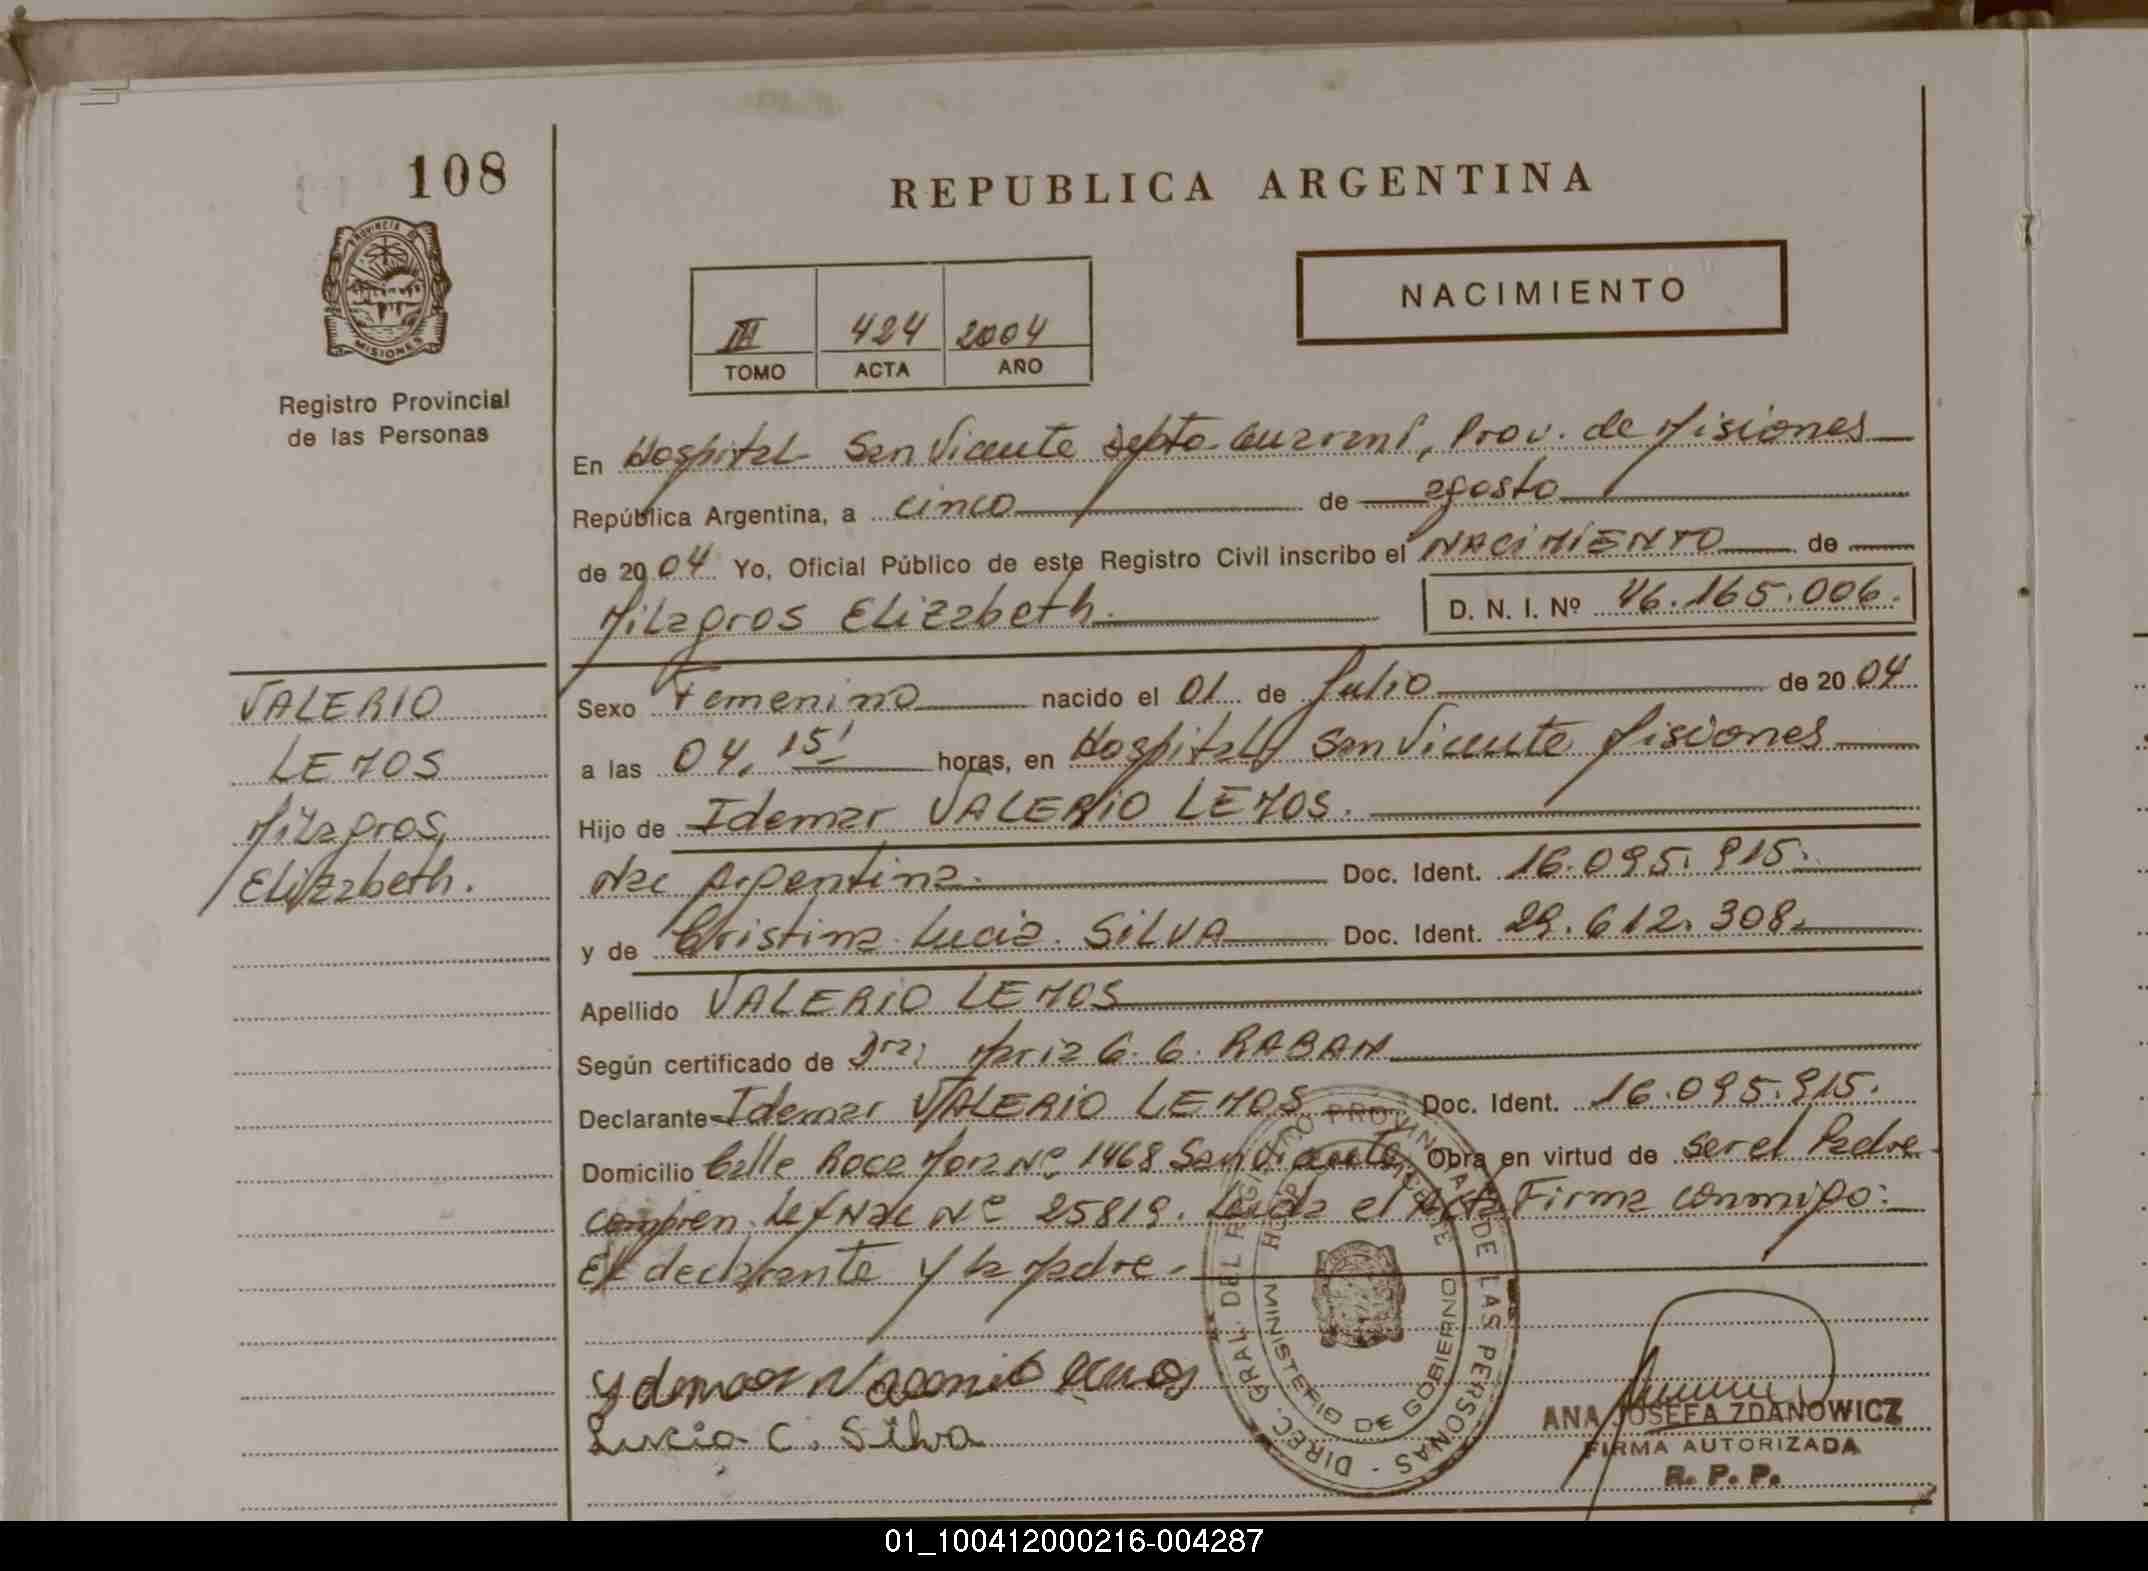 108
REPUBLICA ARGENTINA
PROVINCIA DE
MISIONES
Registro Provincial
de las Personas
NACIMIENTO
III 424 2004
TOMO ACTA AÑO
En Hospital San Vicente Depto. Guaraní, Prov. de Misiones
República Argentina, a cinco de agosto
de 2004 Yo, Oficial Público de este Registro Civil inscribo el NACIMIENTO de
Milagros Elizabeth. D. N. I. Nº 46.165.006.
VALERIO
LEMOS
Milagros
Elizabeth.
Sexo Femenino nacido el 01 de Julio de 2004
a las 04,15' horas, en Hospital San Vicente Misiones
Hijo de Idemar VALERIO LEMOS.
Nac Argentina. Doc. Ident. 16.095.915.
y de Cristina Lucia SILVA Doc. Ident. 29.612.308.
Apellido VALERIO LEMOS
Según certificado de Dra: Maria G. G. RABAN
Declarante Idemar VALERIO LEMOS Doc. Ident. 16.095.915.
Domicilio Calle Roca Mora Nº 1468 San Vicente Obra en virtud de ser el Padre
compren. Ley Nac Nº 25819. Leida el Acta Firma conmigo:
El declarante y la Madre.
Lucia C. Silva
DIREC. GRAL. DEL REGISTRO PROVINCIAL DE LAS PERSONAS -
MINISTERIO DE GOBIERNO
ANA JOSEFA ZDANOWICZ
FIRMA AUTORIZADA
R. P. P.
01_100412000216-004287